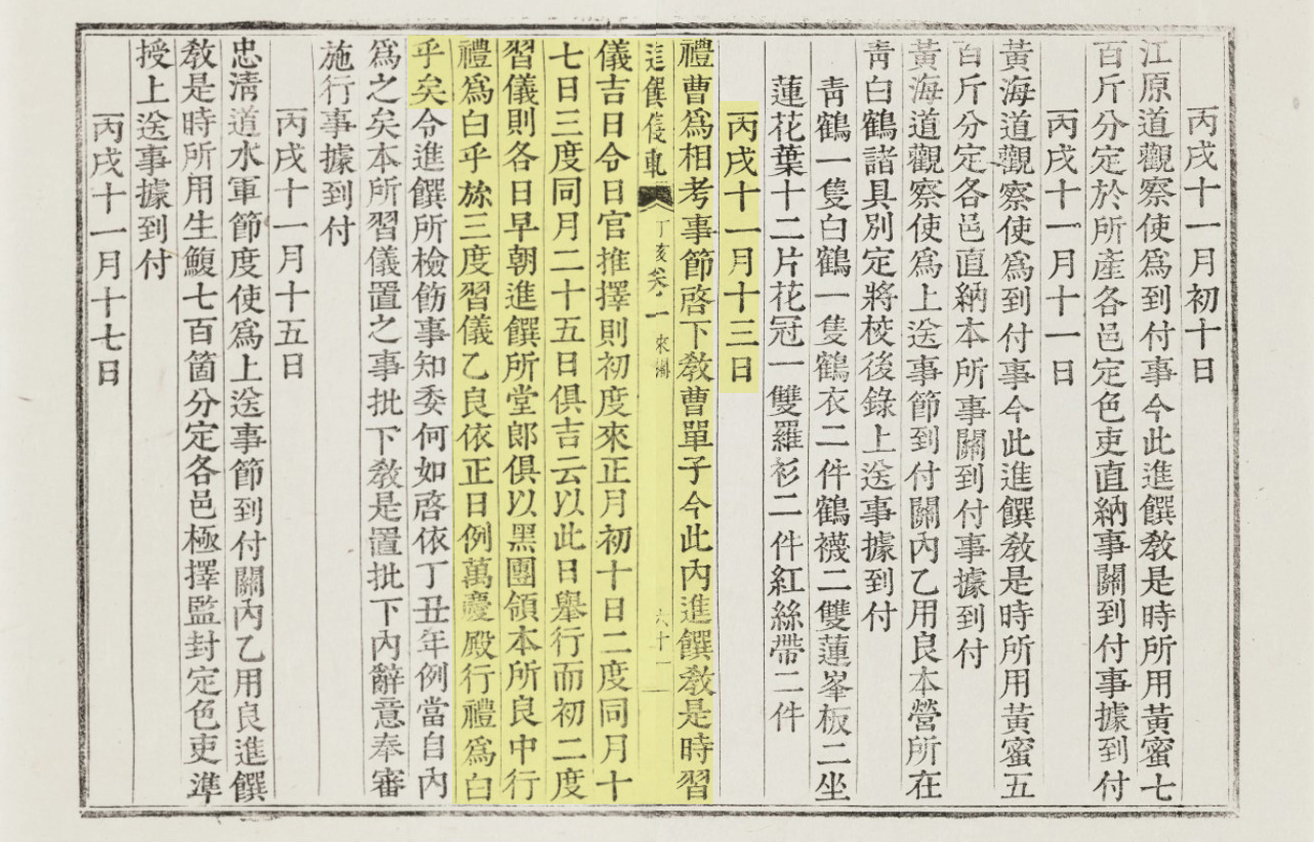 丙戌十一月初十日
江原道觀察使爲到付事今此進饌敎是時所用黃蜜七
百斤分定於所產各邑定色吏直納事關到付事據到付
丙戌十一月十一日
黃海道觀察使爲到付事今此進饌敎是時所用黃蜜五
百斤分定各邑直納本所事關到付事據到付
黃海道觀察使爲上送事節到付關內乙用良本營所在
靑白鶴諸具別定將校後錄上送事據到付
靑鶴一隻白鶴一隻鶴衣二件鶴襪二雙蓮峯板二坐
蓮花葉十二片花冠一雙羅衫二件紅絲帶二件
丙戌十一月十三日
禮曹爲相考事節啓下敎曹單子今此內進饌敎是時習
進饌儀軌 丁亥 卷一 來關 六十一
儀吉日令日官推擇則初度來正月初十日二度同月十
七日三度同月二十五日俱吉云以此日擧行而初二度
習儀則各日早朝進饌所堂郞俱以黑團領本所良中行
禮爲白乎旀三度習儀乙良依正日例萬慶殿行禮爲白
乎矣令進饌所檢飭事知委何如啓依丁丑年例當自內
爲之矣本所習儀置之事批下敎是置批下內辭意奉審
施行事據到付
丙戌十一月十五日
忠淸道水軍節度使爲上送事節到付關內乙用良進饌
敎是時所用生鰒七百箇分定各邑極擇監封定色吏準
授上送事據到付
丙戌十一月十七日